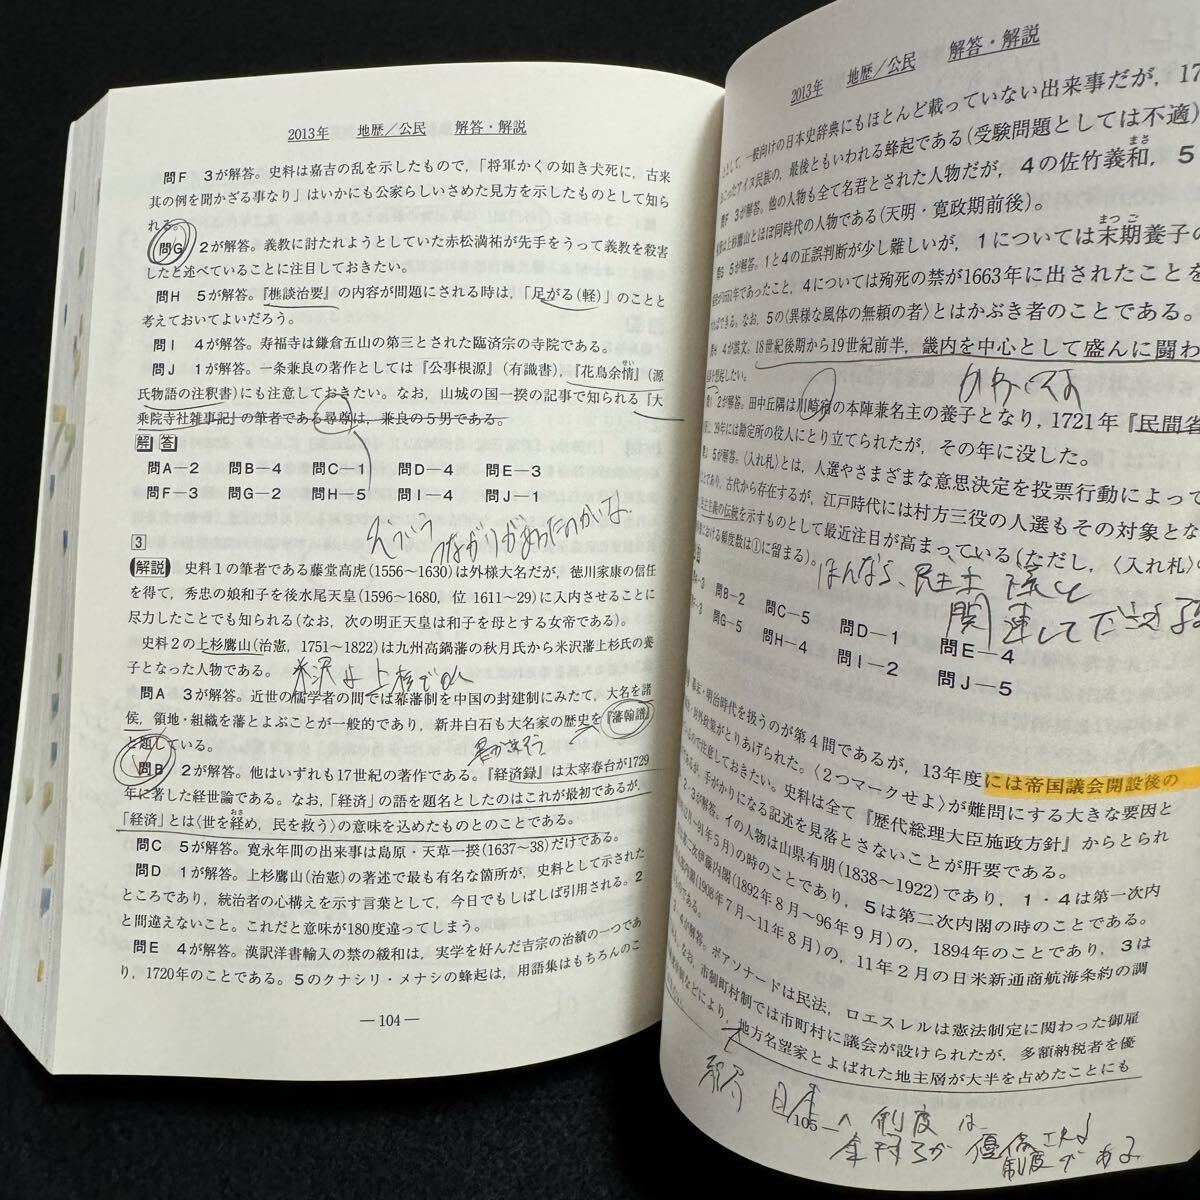 2013年　地歴／公民　解答・解説
問F　3が解答。史料は嘉吉の乱を示したもので，「将軍かくの如き犬死に，古来
其の例を聞かざる事なり」はいかにも公家らしいさめた見方を示したものとして知ら
れる。
問G　2が解答。義教に討たれようとしていた赤松満祐が先手をうって義教を殺害
したと述べていることに注目しておきたい。
問H　5が解答。『樵談治要』の内容が問題にされる時は，「足がる(軽)」のことと
考えておいてよいだろう。
問I　4が解答。寿福寺は鎌倉五山の第三とされた臨済宗の寺院である。
問J　1が解答。一条兼良の著作としては『公事根源』(有識書)，『花鳥余情』(源
せい
氏物語の注釈書)にも注意しておきたい。なお，山城の国一揆の記事で知られる『大
乗院寺社雑事記』の筆者である尋尊は，兼良の5男である。
解答
問A－2　問B－4　問C－1　問D－4　問E－3
問F－3　問G－2　問H－5　問I－4　問J－1
つながりがあったのかな
3
解説　史料1の筆者である藤堂高虎(1556～1630)は外様大名だが，徳川家康の信任
を得て，秀忠の娘和子を後水尾天皇(1596～1680，位 1611～29)に入内させることに
尽力したことでも知られる(なお，次の明正天皇は和子を母とする女帝である)。
史料2の上杉鷹山(治憲，1751～1822)は九州高鍋藩の秋月氏から米沢藩上杉氏の養
子となった人物である。
米沢は上杉
問A　3が解答。近世の儒学者の間では幕藩制を中国の封建制にみたて，大名を諸
侯，領地・組織を藩とよぶことが一般的であり，新井白石も大名家の歴史を『藩翰譜』
と題している。
問B　2が解答。他はいずれも17世紀の著作である。『経済録』は太宰春台が1729
年に著した経世論である。なお，「経済」の語を題名としたのはこれが最初であるが，
おさ
「経済」とは〈世を経め，民を救う〉の意味を込めたものとのことである。
問C　5が解答。寛永年間の出来事は島原・天草一揆(1637～38)だけである。
問D　1が解答。上杉鷹山(治憲)の著述で最も有名な箇所が，史料として示された
ところであり，統治者の心構えを示す言葉として，今日でもしばしば引用される。2
と間違えないこと。これだと意味が180度違ってしまう。
問E　4が解答。漢訳洋書輸入の禁の緩和は，実学を好んだ吉宗の治績の一つであ
り，1720年のことである。5のクナシリ・メナシの蜂起は，用語集はもちろんのこ
―104―
2013年　地歴／公民　解答・解説
として，一般向けの日本史辞典にもほとんど載っていない出来事だが，17
こったアイヌ民族の，最後ともいわれる蜂起である(受験問題としては不適)
まさ
問F　3が解答。他の人物も全て名君とされた人物だが，4の佐竹義和，5
上杉鷹山とほぼ同時代の人物である(天明・寛政期前後)。
まつご
5が解答。1と4の正誤判断が少し難しいが，1については末期養子の
であったこと，4については殉死の禁が1663年に出されたことを
できる。なお，5の〈異様な風体の無頼の者〉とはかぶき者のことである。
4が誤文。18世紀後期から19世紀前半，畿内を中心として盛んに闘わ
したい。
2が解答。田中丘隅は川崎宿の本陣兼名主の養子となり，1721年『民間省
29年には勘定所の役人にとり立てられたが，その年に没した。
5が解答。〈入れ札〉とは，人選やさまざまな意思決定を投票行動によって
であり，古代から存在するが，江戸時代には村方三役の人選もその対象とな
主義の伝統を示すものとして最近注目が高まっている(ただし，〈入れ札〉の
における頻度数は①に留まる)。
ほんなら、民主
関連して
－3　問B－2　問C－5　問D－1　問E－4
－3　問G－5　問H－4　問I－2　問J－5
幕末・明治時代を扱うのが第4問であるが，13年度には帝国議会開設後の
・対外政策がとりあげられた。〈2つマークせよ〉が難問にする大きな要因と
ので注意しておきたい。史料は全て『歴代総理大臣施政方針』からとられ
が，手がかりになる記述を見落とさないことが肝要である。
2・3が解答。イの人物は山県有朋(1838～1922)であり，1・4は第一次内
～91年5月)の時のことであり，5は第二次内閣の時のことである。
第二次伊藤内閣(1892年8月～96年9月)の，1894年のことであり，3は
内閣(1908年7月～11年8月)の，11年2月の日米新通商航海条約の調
のである。
4が解答。ボアソナードは民法，ロエスレルは憲法制定に関わった御雇
なお，市制町村制では市町村に議会が設けられたが，多額納税者を優
などにより，地方名望家とよばれた地主層が大半を占めたことにも
―105―
日本の制度は
金持ちが優位
制度がある